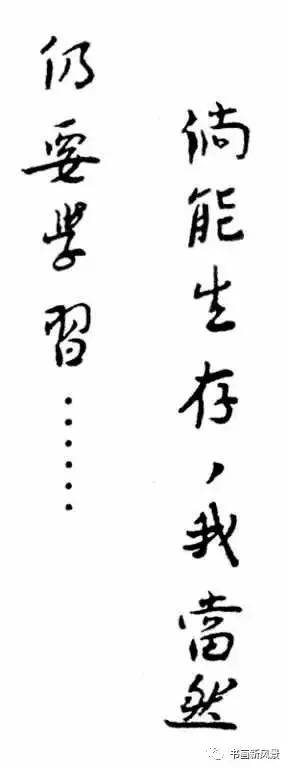 倘能生存，我當然
仍要學習……
书画新风景